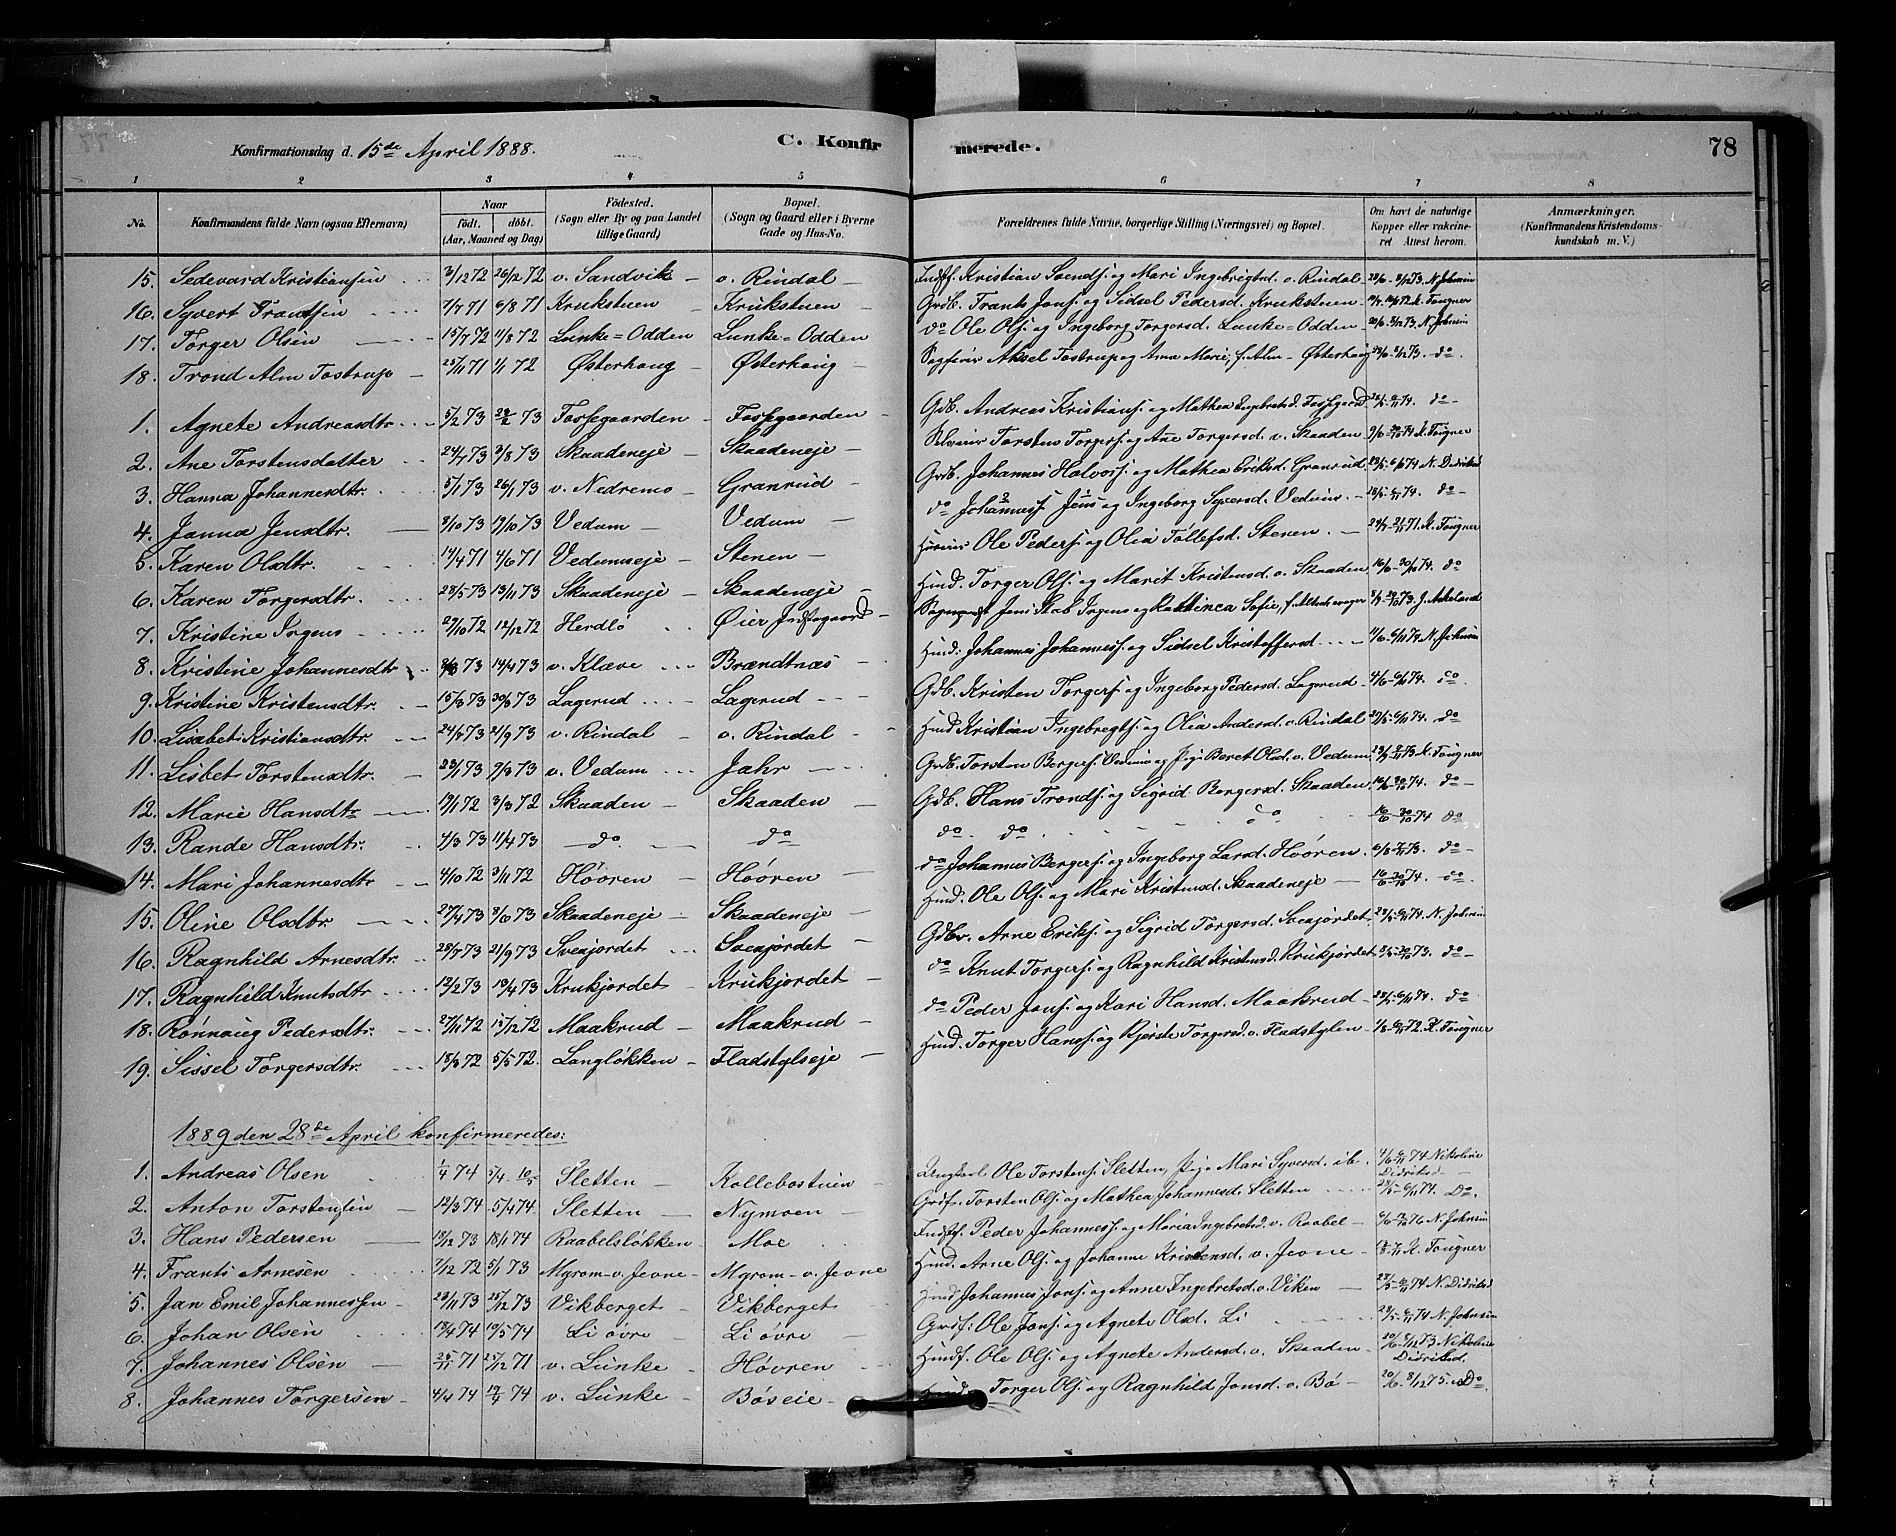 Konfirmationsdag d. 15de April 1888. C. Konfirmerede. 78
1 2 3 4 5 6 7 8
No. Konfirmandens fulde Navn (ogsaa Efternavn) Naar født. døbt. (Aar, Maaned og Dag) Födested. (Sogn eller By og paa Landet tillige Gaard) Bopæl. (Sogn og Gaard eller i Byerne Gade og Hus-No. Forældrenes fulde Navne, borgerlige Stilling (Næringsvei) og Bopæl. Om havt de naturlige Kopper eller vakcineret Attest herom. Anmærkninger. (Konfirmandens Kristendomskundskab m. V.)
15. Sedevard Kristiansen 3/12 72 26/12 72 v. Sandvik v. Rindal Indf. Kristian Svends. og Mari Ingebrigtsd. v. Rindal N. Johnsen
16. Syvert Frantsen 7/7 71 6/8 71 Krukstuen Krukstuen Grdb. Frants Jons. og Sidsel Pedersd. Krukstuen K. Fougner
17. Torger Olsen 15/7 72 11/8 72 Lunke=Odden Lunke=Odden do Ole Ols. og Ingeborg Torgersd. Lunke=Odden 20/6 - 8/12 73. N. Johnsen
18. Trond Alm Tostrup 25/11 71 1/1 72 Østerhaug Østerhaug Sagfører Aksel Tostrup og Ane Marie, f. Alm - Østerhaug do.
1. Agnete Andreasdtr. 5/2 73 23/2 73 Fossegaarden Fossegaarden Gdb. Andreas Kristians. og Mathea Fossegaard do
2. Ane Torstensdatter 24/7 73 3/8 73 Skaadeneje Skaadeneje Torsten Torgers. og Ane Torgersd. v. Skaaden K. Fougner
3. Hanna Johannesdtr. 5/1 73 26/1 73 v. Nedremo Granrud Grdb. Johannes Halvors. og Mathea Eriksd. Granrud N. Didriksd
4. Janna Jensdtr. 8/10 73 19/10 73 Vedum Vedum do Johanness. Jens og Ingeborg Syversd. do
5. Karen Olsdtr. 14/4 71 4/6 71 Vedumseje Stenen Ole Peders. og Olia Tollefsd. Stenen. K. Fougner
6. Karen Torgersdtr. 28/5 73 13/11 73 Skaadeneje Skaadeneje Husd. Torger Ols. og Marit Kristensd. v. Skaaden do
7. Kristine Irgens 27/10 72 12/12 72 Herdlö Øier Jens Stab Irgens og Kathinca Sofie, f.
8. Kristine Johannesdtr. 73 14/4 73 v. Klæve Brændtnæs Husd. Johannes Johanness. og Sidsel Kristoffersd. N. Johnsen
9. Kristine Kristensdtr. 15/3 73 73 Lagerud Lagerud Gdb. Kristen Torgers. og Ingeborg Pedersd. Lagerud do
10. Lisabet Kristiansdtr. 24/6 73 21/9 73 v. Rindal v. Rindal Husd. Kristian Ingebregts. og Olia Andersd. v. Rindal do
11. Lisbet Torstensdtr. 23/1 73 9/3 73 v. Vedum Jahr Grdb. Torsten Bergers. og Pige Beret Olsd. v. Vedum K. Fougner
12. Marie Hansdtr 19/1 72 3/3 72 Skaaden Skaaden Gdb. Hans Tronds. og Sigrid Bergersd. Skaaden. do
13. Rande Hansdtr. 4/3 73 11/4 73 do. do do do. do do
14. Mari Johannesdtr. 4/10 72 3/11 72 Høøren Høøren do Johannes Bergers. og Ingeborg Larsd. Høøren. do
15. Oline Olsdtr. 27/4 73 8/6 73 Skaadeneje Skaadeneje Husd. Ole Ols. og Mari Kristensd. Skaadeneje do
16. Ragnhild Arnesdtr. 25/7 73 21/9 73 Sveajordet Sveajordet Gdbr. Arne Eriks. og Sigrid Torgersd. Sveajordet N. Johnsen
17. Ragnhild Knutsdtr 12/2 73 19/4 73 Krukjordet Krukjordet do Knut Torgers. og Ragnhild Kristensd. Krukjordet do
18. Rönnaug Pedersdtr. 27/11 72 15/12 72 Maakrud Maakrud do Peder Jons. og Kari Hansd. Maakrud do
19. Sissel Torgersdtr. 18/3 72 5/5 72. Langløkken Fladstylseje Husd. Torger Hanss. og Kjersti Torgersd. v. Fladstylen K. Fougner
1889 den 28de April konfirmeredes:
1. Andreas Olsen 1/4 74 Sletten Kollebostuen Ungkarl Ole Torstens. Sletten, Pige Mari Syversd. ib. Nikoline Didriksd
2. Anton Torstensen 12/3 74 5/4 74 Sletten Nymoen Torsten Ols. og Mathea Johannesd. Sletten Do.
3. Hans Pedersen 19/12 73 18/1 74 Raabelsløkken Moe Indf. Peder Johanness. og Maria Ingebretsd. v. Raabel N. Johnsen
4. Frants Arnesen 7/12 72 5/1 73 Myrom - v. Jevne Myrom - v. Jevne Husd. Arne Ols. og Johanne Kristensd. v. Jevne K. Fougner
5. Jan Emil Johannessen 23/11 73 25/12 73 Vikberget Vikberget Husd. Johannes Jons. og Anne Ingebretsd. v. Viken N. Didriksd
6. Johan Olsen 19/4 74 10/5 74 Li øvre Li øvre Ole Jons. og Agnete Olsd. Li N. Johnsen
7. Johannes Olsen 25/11 71 25/12 71 v. Lunke Høvren Ole Ols. og Agnete Andersd. v. Skaaden Nikoline Didriksd.
8. Johannes Torgersen 4/4 74 19/4 74 v. Lunke Böseie Torger Ols. og Ragnhild Jonsd. v. Bö 8/12 75. Do